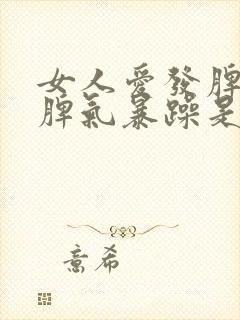 女人愛發脾
脾氣暴躁是
意希